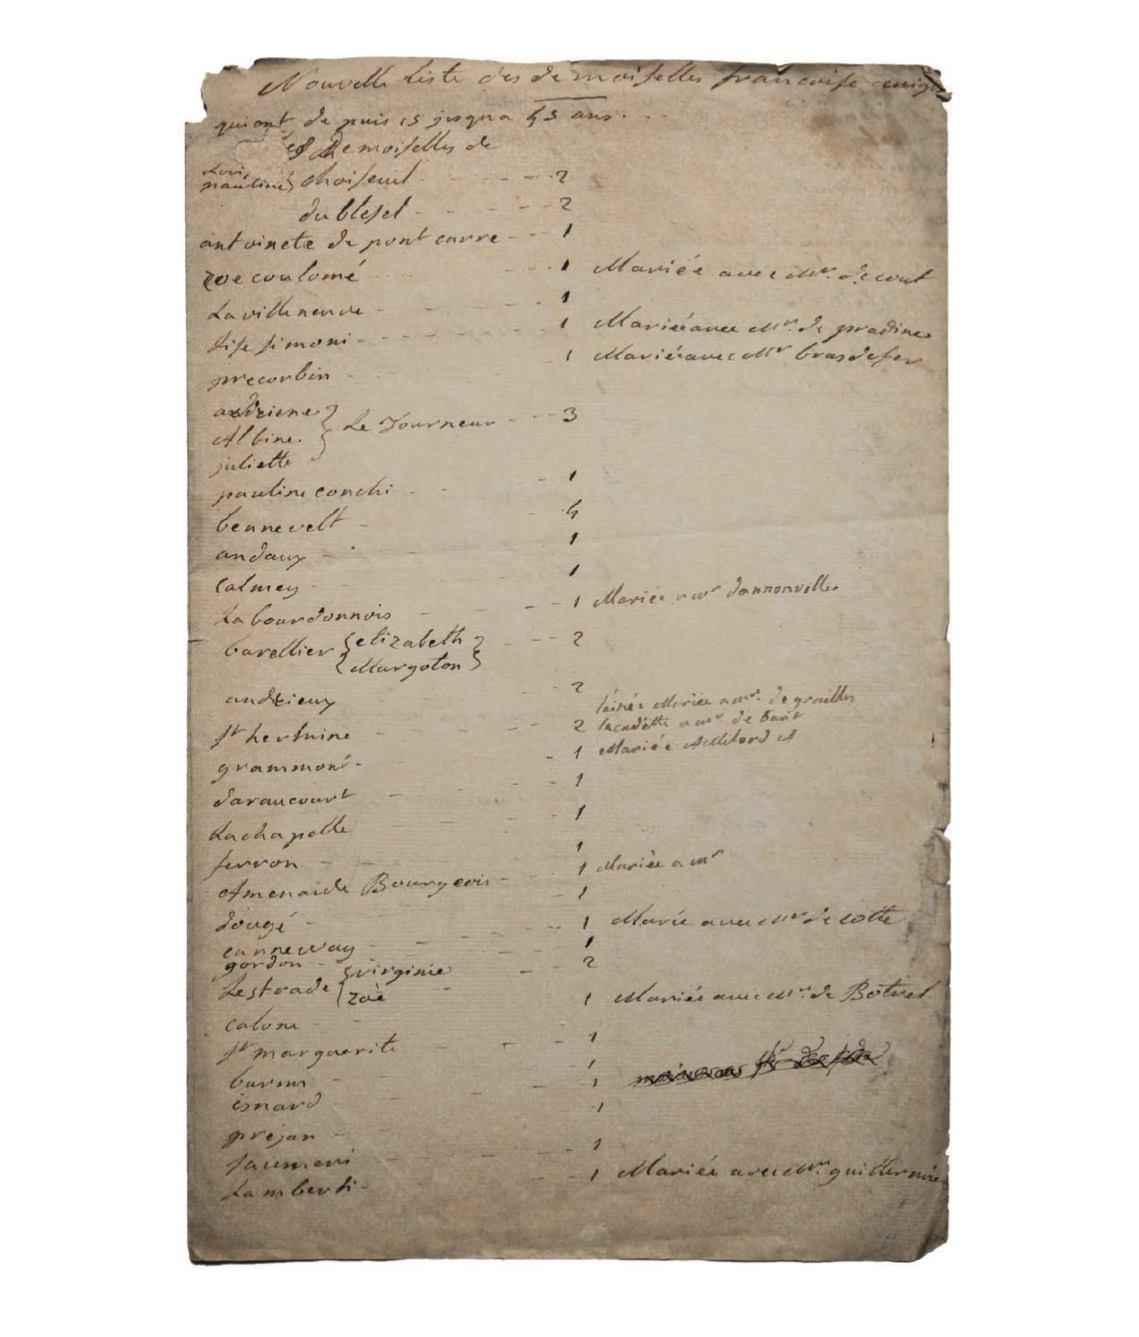 Nouvelle Liste des demoiselles francoise
qui ont de puis 15 jusqua 45 ans.
Demoiselles de
pauline } choiseuil 2
du blesel 2
antoinete de pont carre 1
zoe coulomé 1 Mariée avec Mr. de
Lavilleneuve 1
Lise simoni 1 Mariée avec Mr. de pradines
precorbin 1 Mariée avec Mr brasdefer
andriene
Albine } Le Tourneur 3
juliette
pauline conchi 1
bennevelt 4
andaux 1
calmey 1
Labourdonnois 1 Mariée a mr dannonville
barellier { elizabeth } 2
{ Margoton }
andrieux 2
st hermine 2 lainée Mariée a mr. de grailles
lacadette a mr de
grammont 1 Mariée a Milord A
daraucourt 1
Lachapelle 1
ferron 1
Amenaide Bourgeois 1 Mariée a mr
dougé 1
canneway 1 Marie avec Mr de cotte
gordon 1
Lestrade { virginie 2
{ Zoè
calone 1 Mariée avec Mr. de Botrel
st marguerite 1
barms 1
isnard 1
prejan 1
saumeri 1
Lamberti 1 Mariée avec Mr.